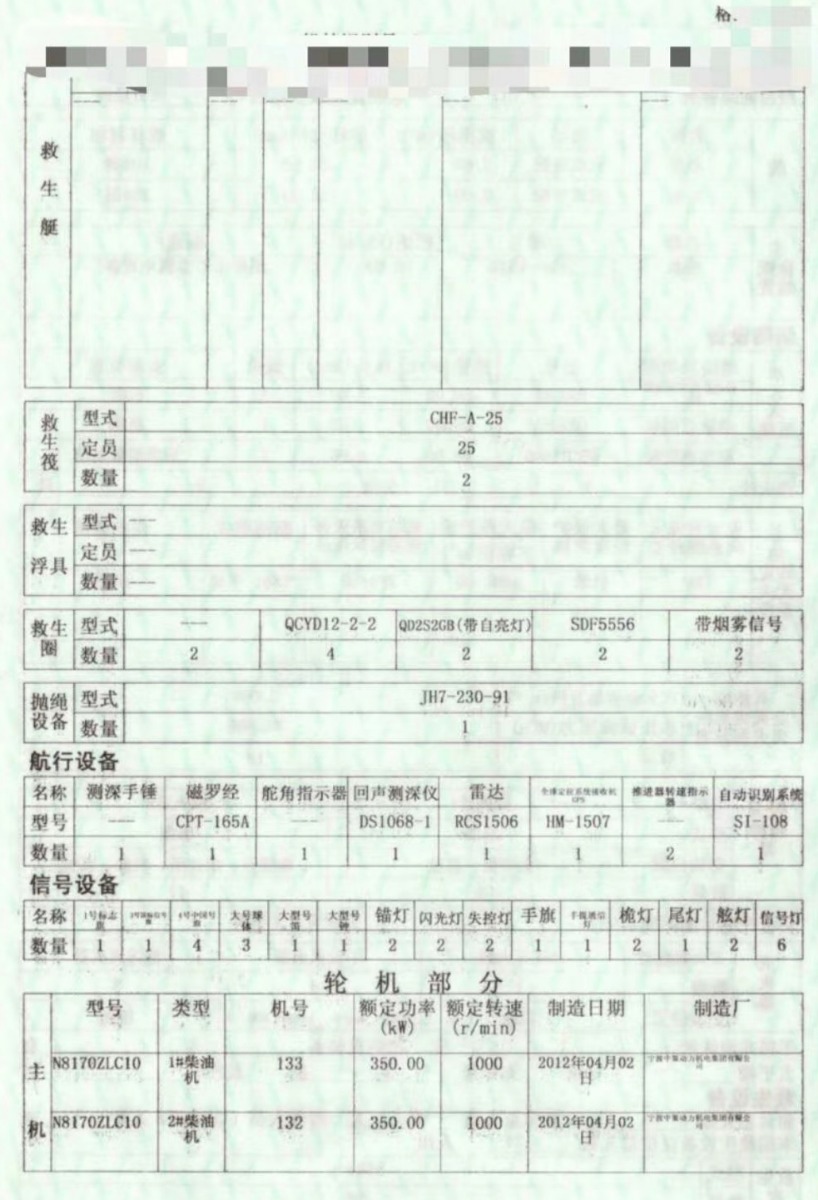 救生艇
救生筏 型式 CHF-A-25
定员 25
数量 2
救生浮具 型式 ---
定员 ---
数量 ---
救生圈 型式 --- QCYD12-2-2 QD2S2GB(带自亮灯) SDF5556 带烟雾信号
数量 2 4 2 2 2
抛绳设备 型式 JH7-230-91
数量 1
航行设备
名称 测深手锤 磁罗经 舵角指示器 回声测深仪 雷达 全球定位系统接收机GPS 推进器转速指示器 自动识别系统
型号 --- CPT-165A --- DS1068-1 RCS1506 HM-1507 --- SI-108
数量 1 1 1 1 1 1 2 1
信号设备
名称 1号标志旗 4号中国号旗 大号球体 大型号笛 大型号钟 锚灯 闪光灯 失控灯 手旗 手提通信灯 桅灯 尾灯 舷灯 信号灯
数量 1 1 4 3 1 1 2 2 2 1 1 2 1 2 6
轮机部分
型号 类型 机号 额定功率(kW) 额定转速(r/min) 制造日期 制造厂
主机 N8170ZLC10 1#柴油机 133 350.00 1000 2012年04月02日 宁波中策动力机电集团有限公司
N8170ZLC10 2#柴油机 132 350.00 1000 2012年04月02日 宁波中策动力机电集团有限公司